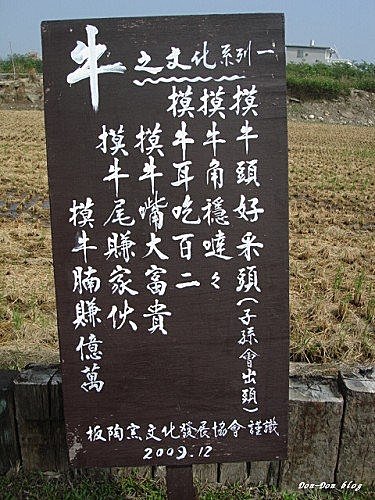 牛之文化系列一
摸牛頭好采頭(子孫會出頭)
摸牛角穩噠々
摸牛耳吃百二
摸牛嘴大富貴
摸牛尾賺家伙
摸牛腩賺億萬
板陶窯文化發展協會 謹識
2009.12
Don-Don blog